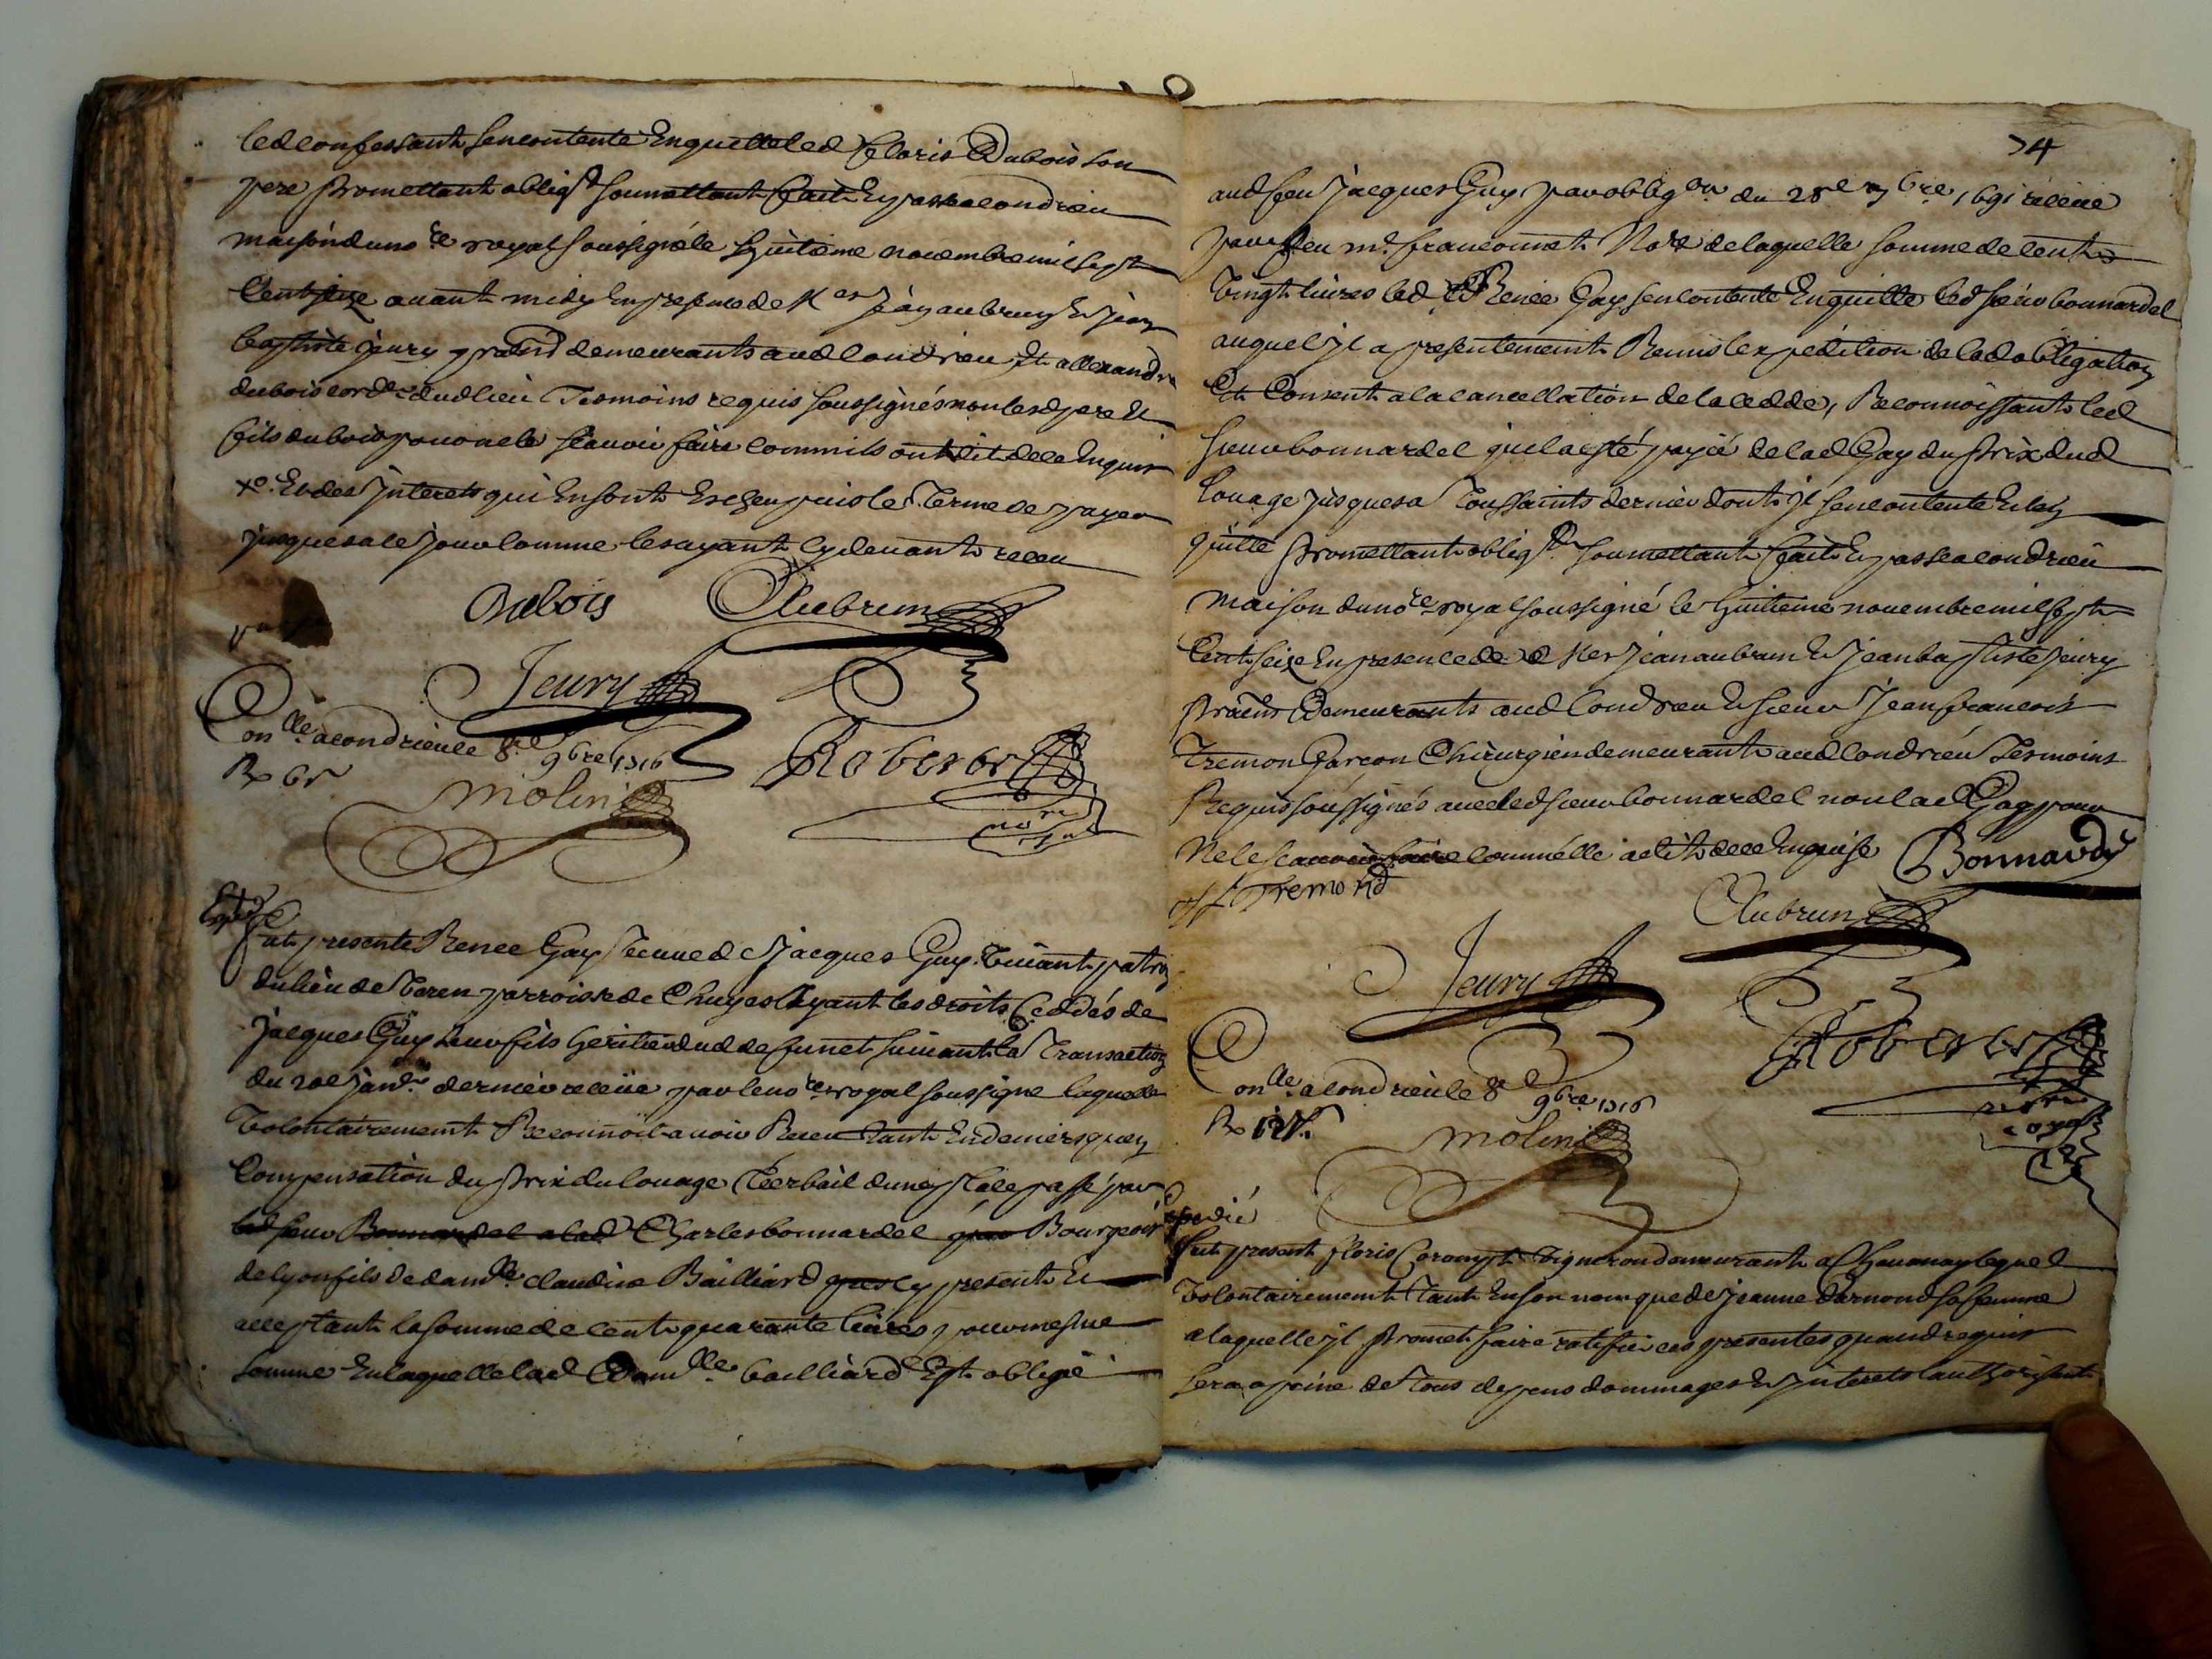 led confessant sen contente En quitte led Cloris Dubois son
pere promettant obligt soumettant fait Ey passe a condrieu
maison du nore royal soussigné le huitieme novembre mil sept
Cent seize avant midy En presence de Jean aubrun Et Jean
baptiste jeury demeurants aud Condrieu Et allexandre
dubois cordr dud lieu Tesmoins requis soussignés non lesd pere Et
fils dubois pour ne le sçavoir faire comm ils ont dit de ce Enquis
xo. Et des Interets qui En sont Escheu puis le Terme de payer
jusques a ce jour comme les ayant cy devant receu
Dubois Aubrun
Jeury
Conlle a condrieu le 8e 9bre 1716
Rx 6s
Roberes
molin
nore
Expedié
Fut presente Renee Gay veuve de Jacques Guy vivant patron
du lieu de Veren parroisse de Chuyes Ayant les droits Ceddés de
jacques Guy leur fils heritier dud deffunct suivant la Transaction
du 20e janr dernier receüe par le nore royal soussigne laquelle
Volontairement Reconnoit avoir Receu Tant En deniers qu'en
Compensation du prix du louage passé par
led sieur Bonnardel a lad Charles bonnardel Bourgeois
de lyon fils de damlle claudine Bailliard cy present Et
acceptant la somme de cent quarante livres pour mesme
somme En laquelle lad Damlle bailliard Est obligée
74
aud feu Jacques Guy par obligon du 28e 7bre 1691 receue
par feu me franconnet Nore de laquelle somme de cent
Vingt livres led Renee Gay sen contente En quitte led sieur bonnardel
auquel jl a presentement Remis l'expedition de lad obligation
Et Consent a la cancellation de la cedde, Reconnoissant led
sieur bonnardel qu'il a esté payé de lad Gay du prix dud
louage jusques a Toussaints dernier dont jl sen contente Et len
quitte promettant obligt soumettant fait Ey passe a condrieu
maison du nore royal soussigné le huitieme novembre mil sept
Cent seize En presence de Jean aubrun Et Jean baptiste jeury
demeurants aud Condrieu Et sieur Jean francois
Tremon Garcon Chirurgien demeurant aud condrieu Tesmoins
Requis soussignés avec led sieur bonnardel non lad Gay pour
Ne le scavoir faire comm'elle a dit de ce Enquise Bonnardel
Tremond
Aubrun
Jeury
Conlle a condrieu le 8e 9bre 1716
Rx 12s
Roberes
molin
nore
royal
Expedié
Fut present floris Corompt vigneron demeurant a Chavanay lequel
Volontairement Tant En son nom que de jeanne Darnond sa femme
a laquelle jl promet faire ratifier ces presentes quand requis
sera a peine de Tous depens dommages Et Interets lauthorisant